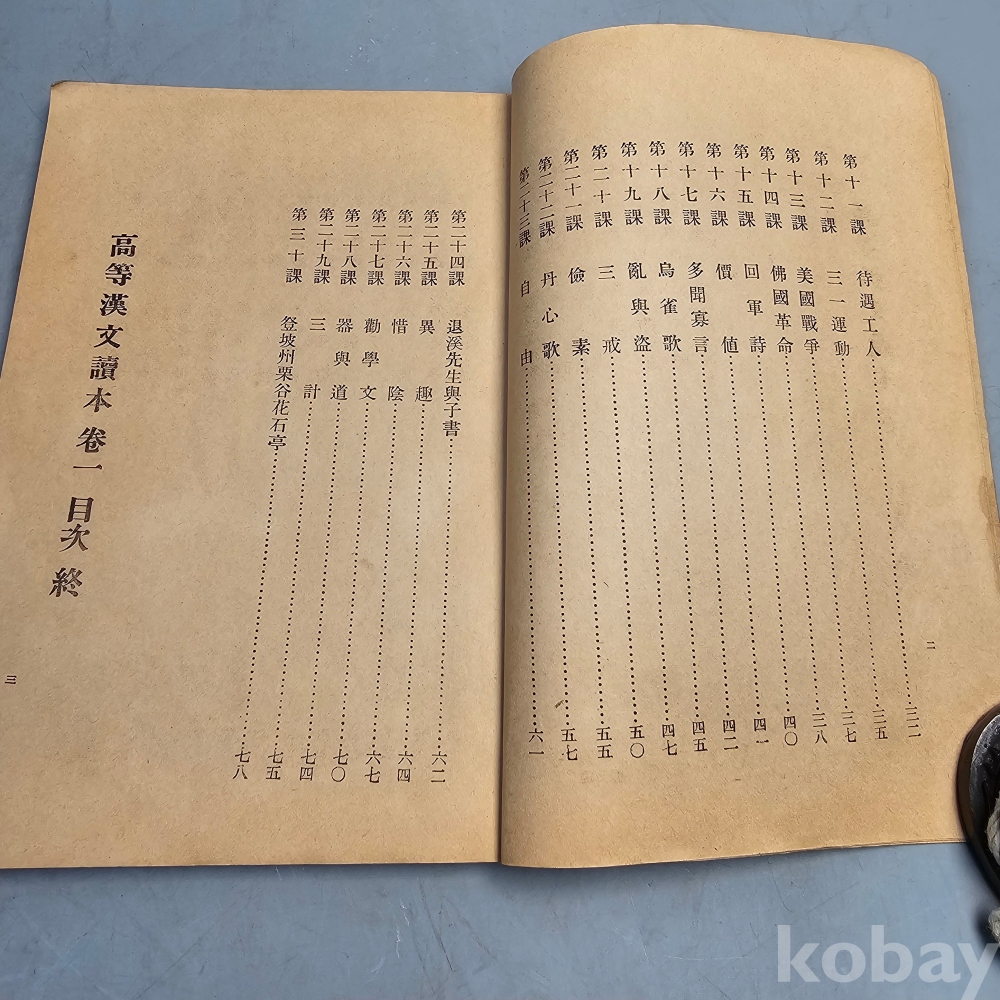 第十一課 待遇工人……三二
第十二課 三一運動……三五
第十三課 美國戰爭……三七
第十四課 佛國革命……三八
第十五課 回軍詩……四〇
第十六課 價値……四一
第十七課 多聞寡言……四二
第十八課 烏雀歌……四五
第十九課 亂與盜……四七
第二十課 三戒……五〇
第二十一課 儉素……五五
第二十二課 丹心歌……五七
第二十三課 自由……六一
二
第二十四課 退溪先生與子書……六二
第二十五課 異趣……六四
第二十六課 惜陰……六七
第二十七課 勸學文……七〇
第二十八課 器與道……七四
第二十九課 三計……七五
第三十課 登坡州栗谷花石亭……七八
高等漢文讀本 卷一 目次 終
三
kobay